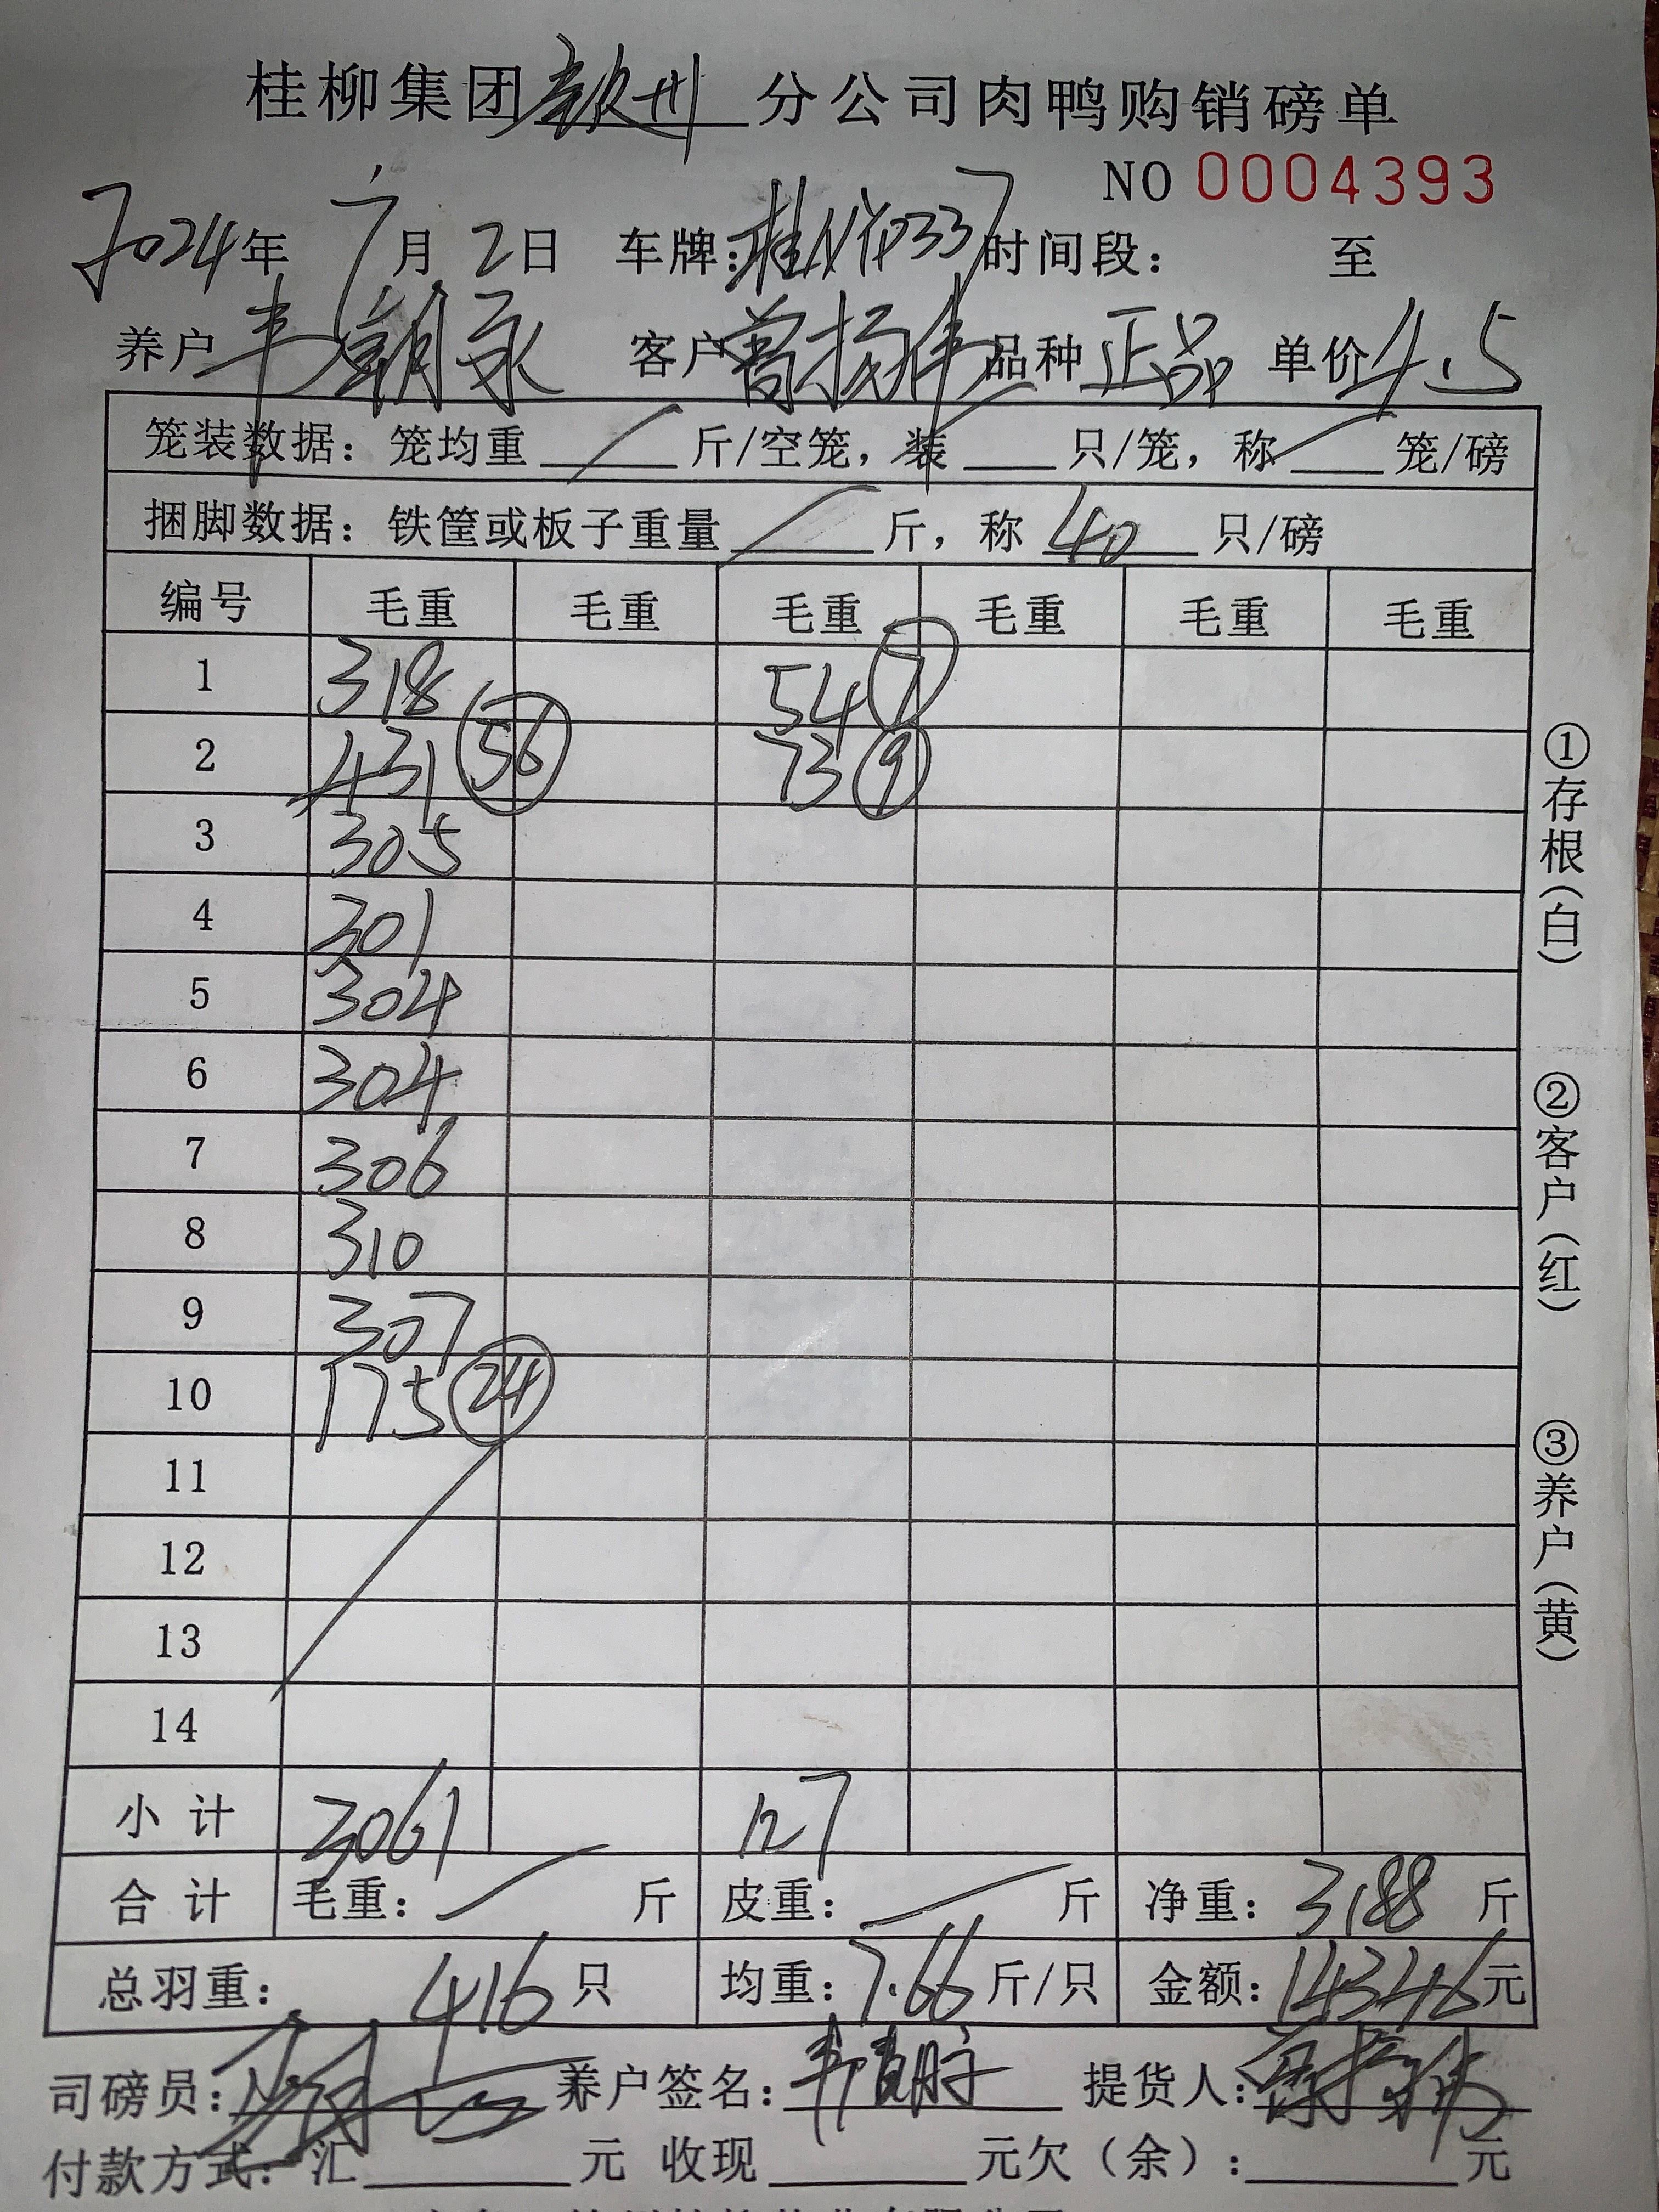 桂柳集团钦州分公司肉鸭购销磅单
NO 0004393
2024年 7月 2日 车牌: 时间段: 至
养户 客户 曾扬伟 品种 正品 单价 4.5
笼装数据: 笼均重 斤/空笼, 装 只/笼, 称 笼/磅
捆脚数据: 铁筐或板子重量 斤, 称 40 只/磅
编号 毛重 毛重 毛重 毛重 毛重 毛重
1 318 54 7
2 431 56 73 9
3 305
4 301
5 304
6 304
7 306
8 310
9 307
10 175 24
11
12
13
14
小计 3061 127
合计 毛重: 斤 皮重: 斤 净重: 3188 斤
总羽重: 416 只 均重: 7.66 斤/只 金额: 14346 元
司磅员: 养户签名: 提货人:
付款方式: 汇 元 收现 元 欠(余): 元
①存根(白)
②客户(红)
③养户(黄)